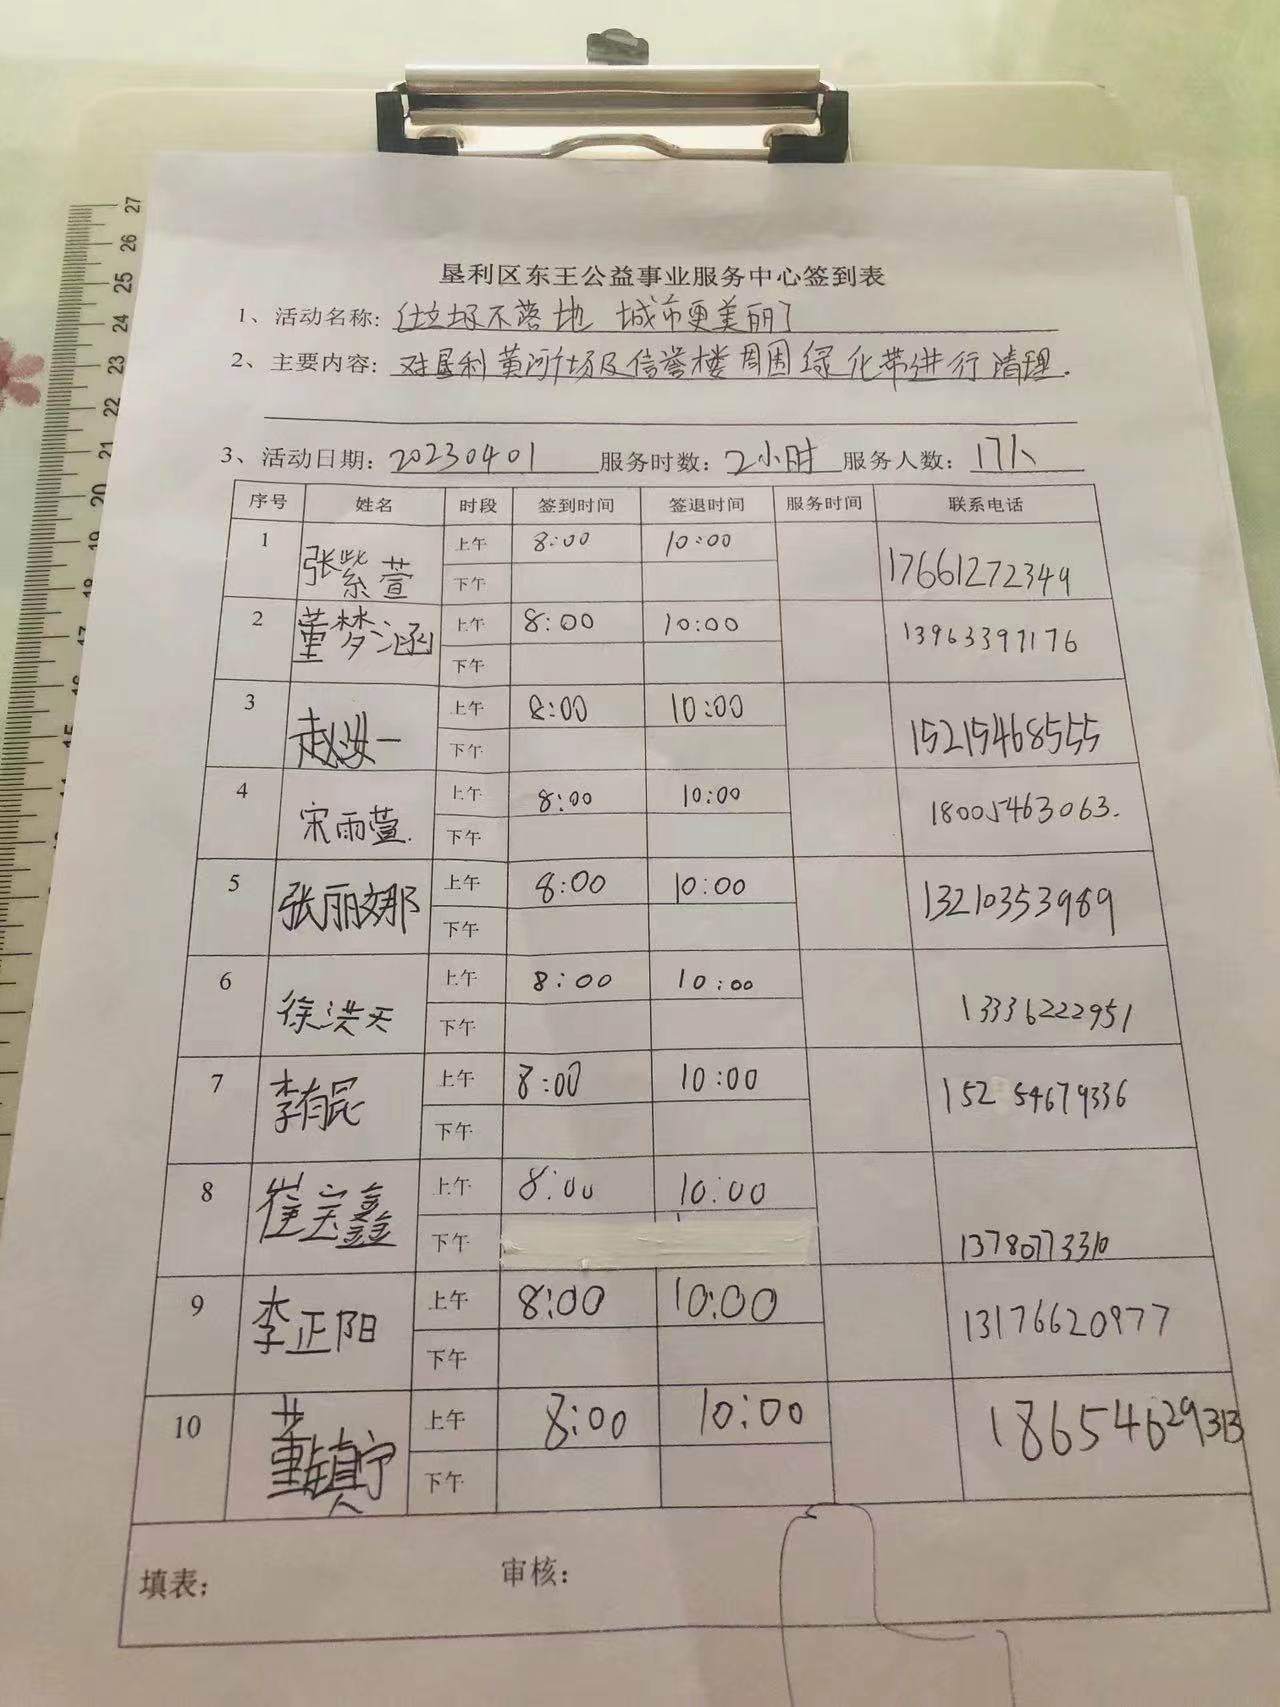 垦利区东王公益事业服务中心签到表
1、活动名称: 《垃圾不落地 城市更美丽》
2、主要内容: 对垦利黄河广场及信誉楼周围绿化带进行清理.
3、活动日期: 20230401 服务时数: 2小时 服务人数: 17人
序号 姓名 时段 签到时间 签退时间 服务时间 联系电话
1 张紫萱 上午 8:00 10:00 17661272349
下午
2 董梦涵 上午 8:00 10:00 13963397176
下午
3 赵汝一 上午 8:00 10:00 15215468555
下午
4 宋雨萱. 上午 8:00 10:00 18005463063.
下午
5 张丽娜 上午 8:00 10:00 13210353989
下午
6 徐洪天 上午 8:00 10:00 13336222951
下午
7 李有昆 上午 8:00 10:00 15254679336
下午
8 崔宝鑫 上午 8:00 10:00 13780773310
下午
9 李正阳 上午 8:00 10:00 13176620977
下午
10 董镇宁 上午 8:00 10:00 18654629313
下午
填表: 审核:
27
26
25
24
23
22
21
20
19
18
17
16
15